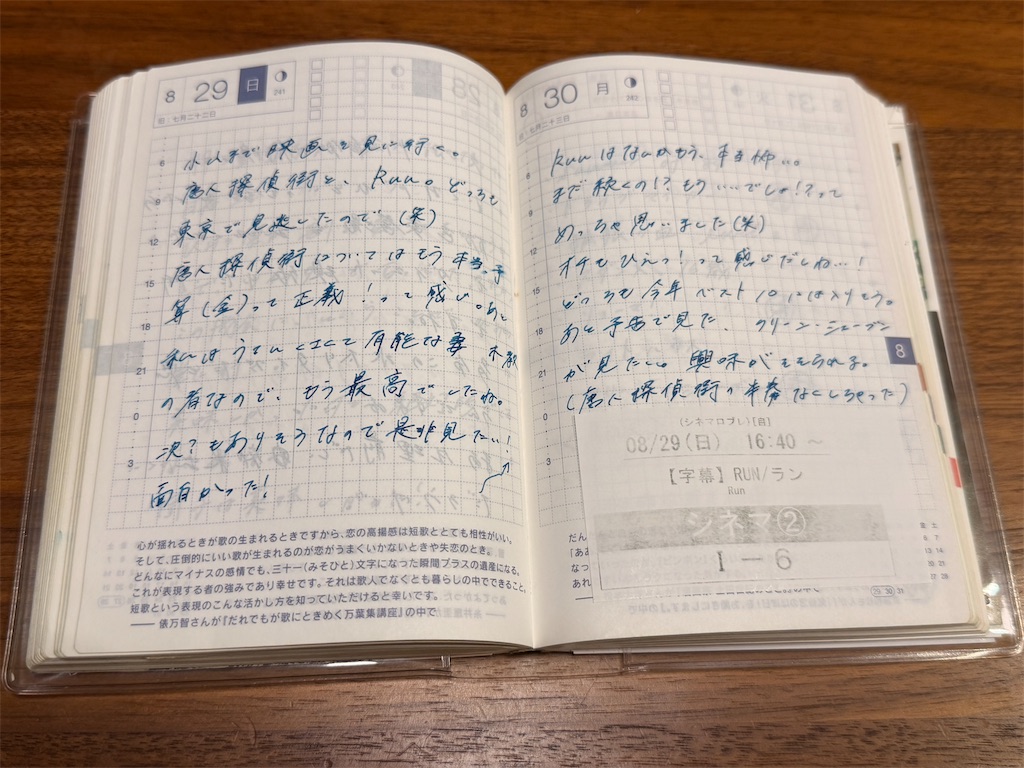 8 29 日
241
旧 七月二十二日
小山まで映画を見に行く。
唐人探偵街と、Run。どっちも
東京で見逃したので(笑)
唐人探偵街についてはもう本当、予
算(金)って正義!って感じ。あと
私は
の者なので、もう最高でしたね。
次?もありそうなので是非見たい!
面白かった!
6
9
12
15
18
21
0
3
心が揺れるときが歌の生まれるときですから、恋の高揚感は短歌ととても相性がいい。
そして、圧倒的にいい歌が生まれるのが恋がうまくいかないときや失恋のとき。
どんなにマイナスの感情でも、三十一(みそひと)文字になった瞬間プラスの遺産になる。
これが表現する者の強みであり幸せです。それは歌人でなくとも暮らしの中でできること。
短歌という表現のこんな活かし方を知っていただけると幸いです。
―― 俵万智さんが『だれでもが歌にときめく万葉集講座』の中で
8 30 月
242
旧 七月二十三日
Runはなんかもう、本当怖…。
まだ続くの!?もう……でしょ!?って
めっちゃ思いました(笑)
オチもひえっ!って感じだしね…!
どっちも今年ベスト10には入りそう。
あと予告で見た、クリーン・シェーブン
が見たい。興味がそそられる。
(唐人探偵街の半券なくしちゃった)
6
9
12
15
18
21
0
3
8
(シネマロブレ)[自]
08/29(日) 16:40 ~
【字幕】RUN/ラン
Run
シネマ②
I-6
だん
「ああ
なっ
れ
29 30 31